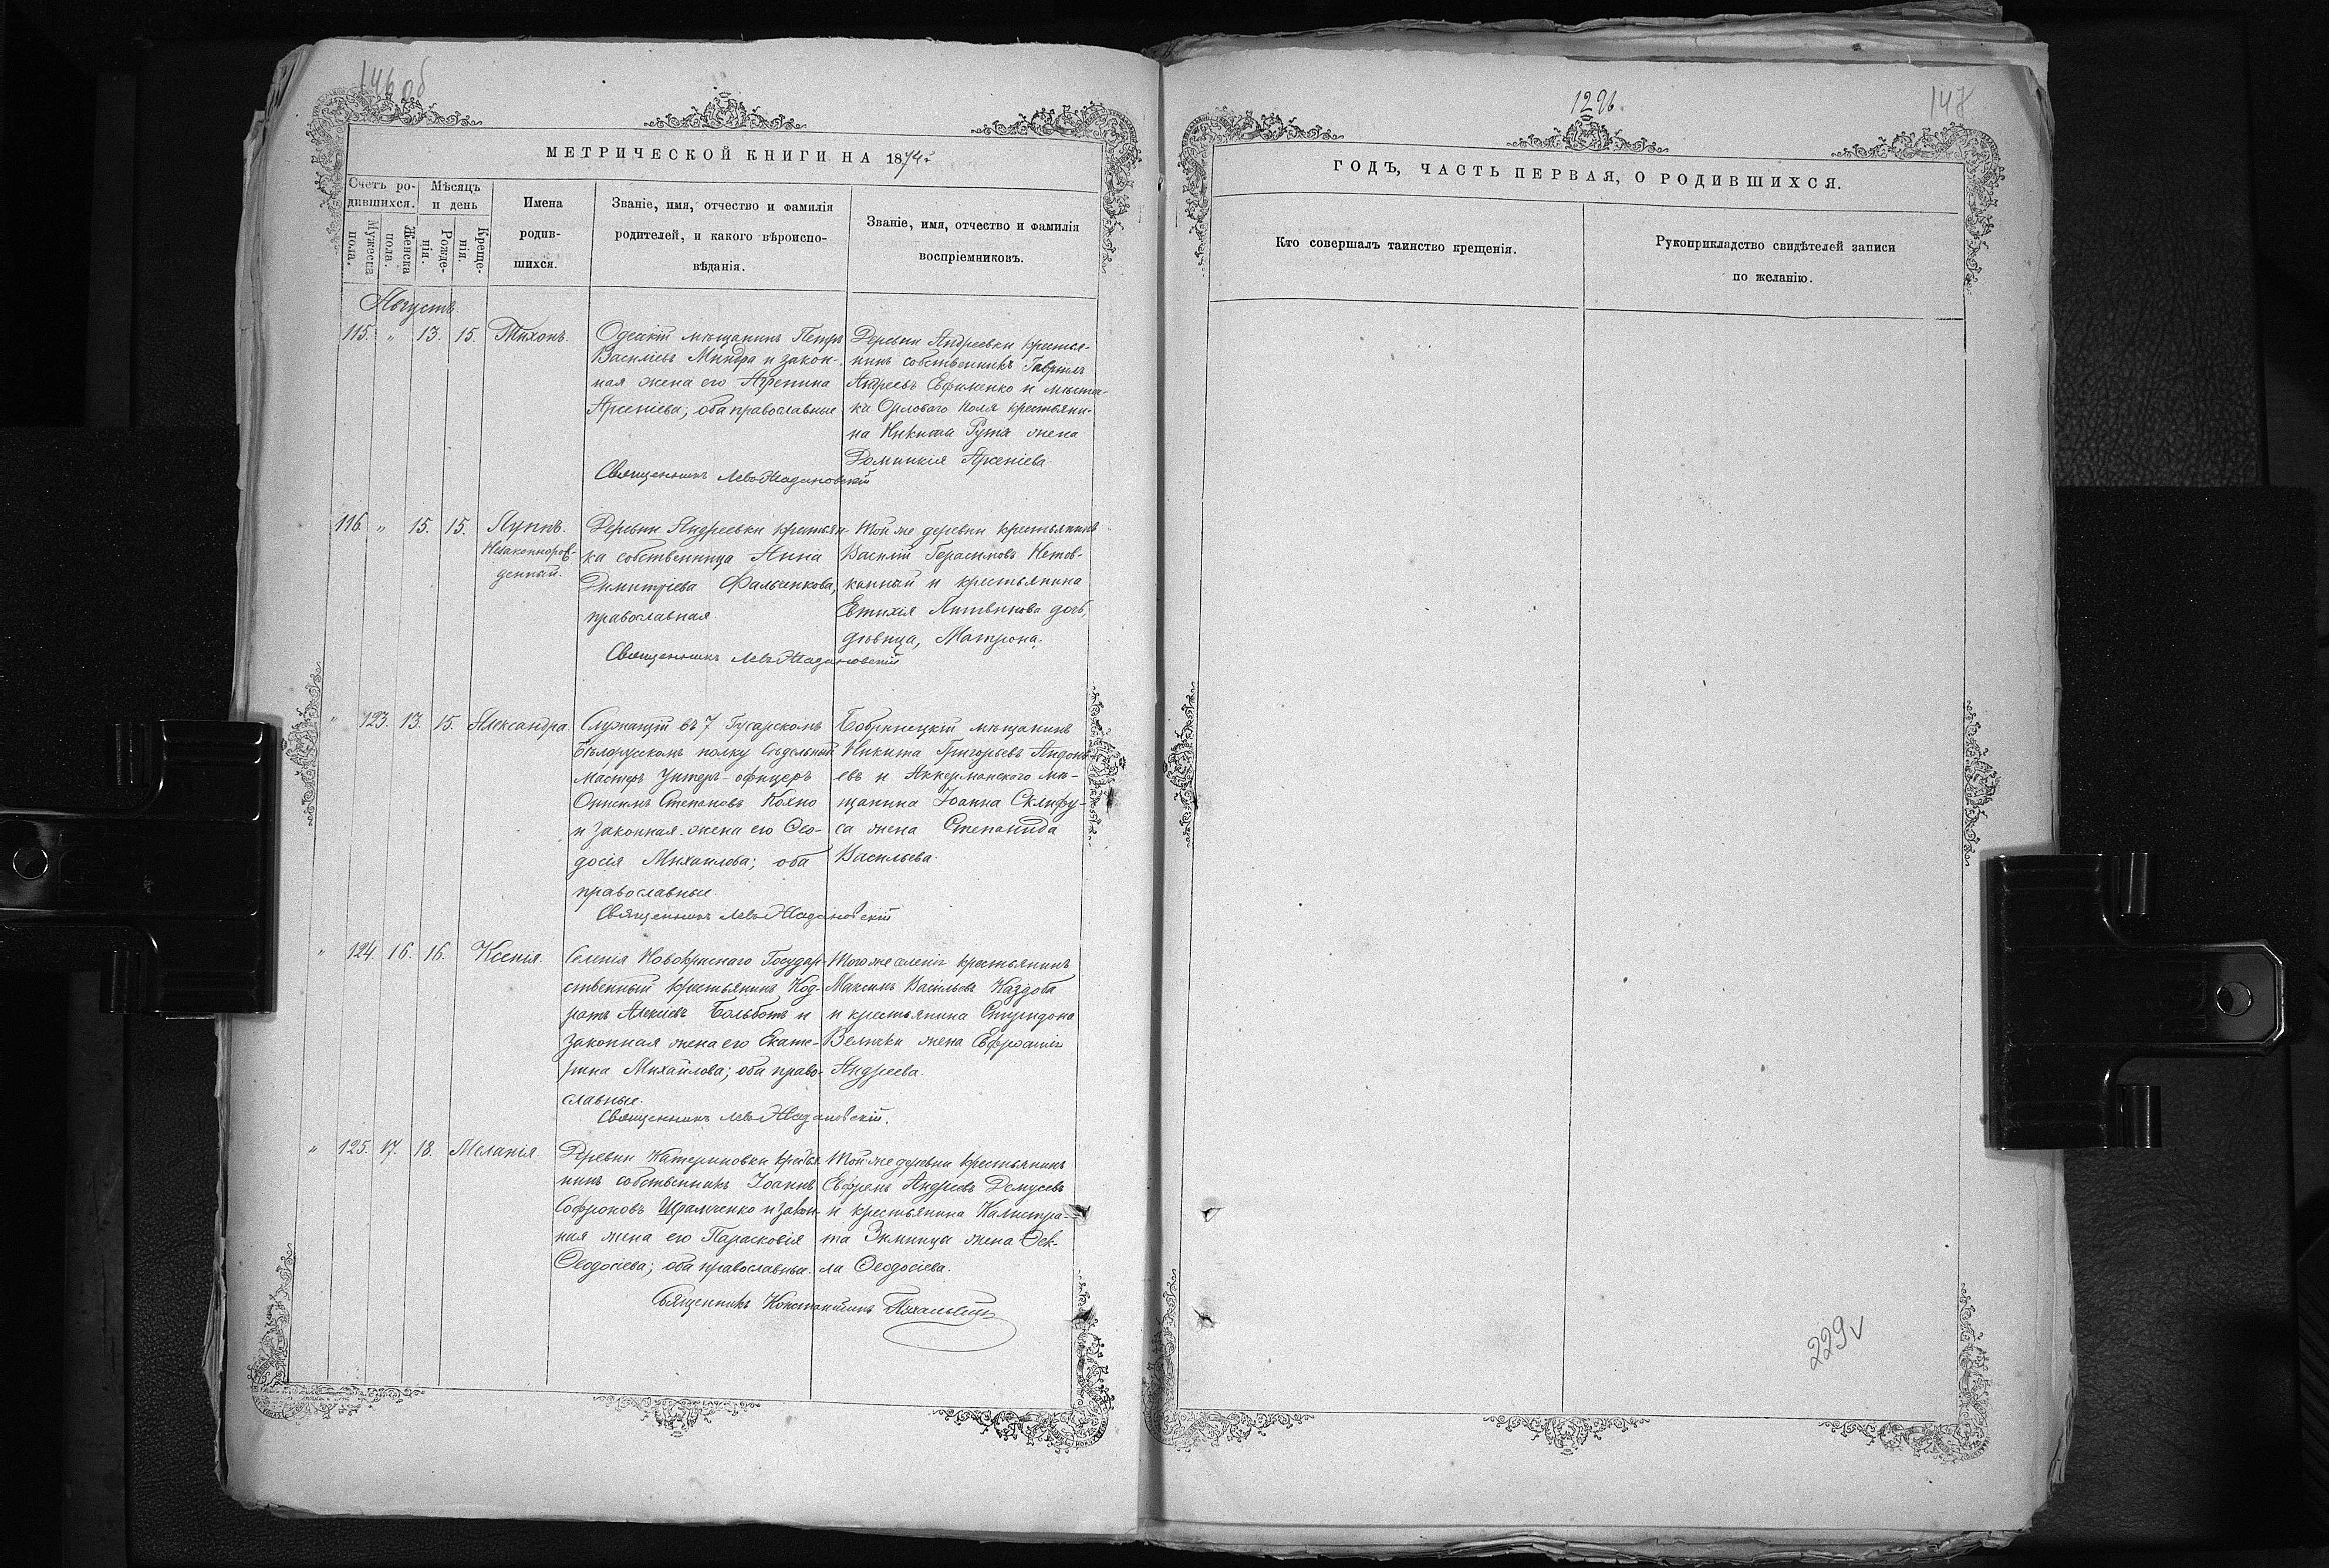 146 об
МЕТРИЧЕСКОЙ КНИГИ НА 1874 г.
Счетъ ро-
дившихся.
Мужеска
пола.
Женска
пола.
Мѣсяцъ
и день
Рожде-
нія.
Креще-
нія.
Имена
родив-
шихся.
Званіе, имя, отчество и фамилія
родителей, и какого вѣроиспо-
вѣданія.
Званіе, имя, отчество и фамилія
воспріемниковъ.
Августъ
115. " 13. 15. Тихонъ.
Одескій мѣщанинъ Петръ
Василіевъ Миндра и закон-
ная жена его Агрепина
Арсеніева; оба православные
Деревни Андреевки крестья-
нинъ собственникъ Гавріилъ
Андреевъ Ефименко и мѣстеч-
ка Орловаго Поля крестьяни-
на Никиты Рута жена
Домникія Арсеніева
Священникъ Левъ Жадановскій
116. " 15. 15. Луппъ.
Незаконнорож-
денный.
Деревни Андреевки крестьян-
ка собственница Анна
Димитріева Фальченкова,
православная.
Той же деревни крестьянинъ
Василій Герасимовъ
и крестьянина
Евтихія Литвинова дочь,
дѣвица, Матрона.
Священникъ Левъ Жадановскій
" 123. 13. 15. Александра.
Служащій въ 7 Гусарскомъ
Бѣлорусскомъ полку Сѣдельный
мастеръ Унтеръ-офицеръ
Онисимъ Степановъ Кохно
и законная жена его Ѳео-
досія Михаилова; оба
православные.
Бобринецкій мѣщанинъ
Никита Григорьевъ Андонь-
евъ и Аккерманскаго мѣ-
щанина Іоанна Склифу-
са жена Степанида
Васильева.
Священникъ Левъ Жадановскій
" 124. 16. 16. Ксенія.
Селенія Новокриснаго Государ-
ственный крестьянинъ Код-
ратъ Алексіевъ Больботъ и
законная жена его Екате-
рина Михайлова; оба право-
славные.
Того же селенія крестьянинъ
Максимъ Васильевъ Каздоба
и крестьянина Спиридона
Велички жена Евфросинія
Андреева.
Священникъ Левъ Жадановскій.
" 125. 17. 18. Меланія.
Деревни Катериновки крестья-
нинъ собственникъ Іоаннъ
Софроновъ Шрамченко и закон-
ная жена его Парасковія
Ѳеодосіева; оба православные.
Той же деревни крестьянинъ
Ефремъ Андреевъ Демусевъ
и крестьянина Калистра-
та Зимницы жена Ѳек-
ла Ѳеодосіева.
Священникъ Константинъ
1296.
147
ГОДЪ, ЧАСТЬ ПЕРВАЯ, О РОДИВШИХСЯ.
Кто совершалъ таинство крещенія.
Рукоприкладство свидѣтелей записи
по желанію.
229 v